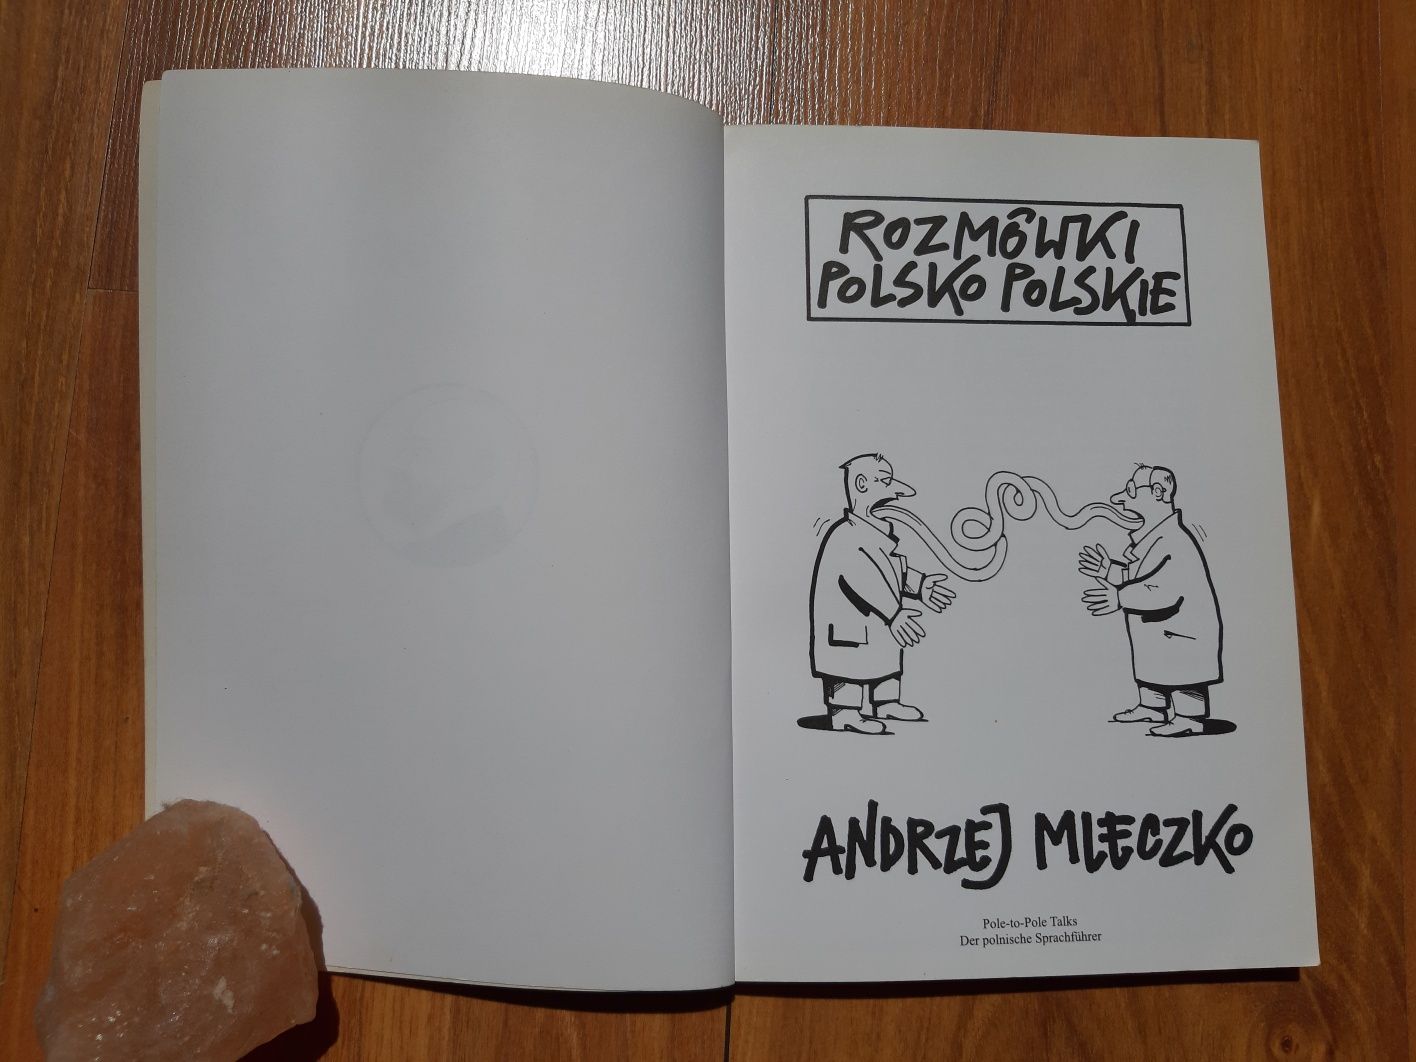 ROZMÓWKI
POLSKO POLSKIE
ANDRZEJ MLECZKO
Pole-to-Pole Talks
Der polnische Sprachführer